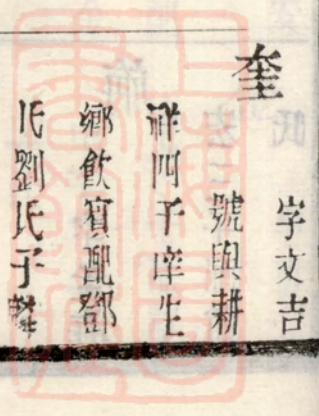 奎
字文吉
號與耕
祥四子庠生
鄉飲賓配鄧
氏劉氏子